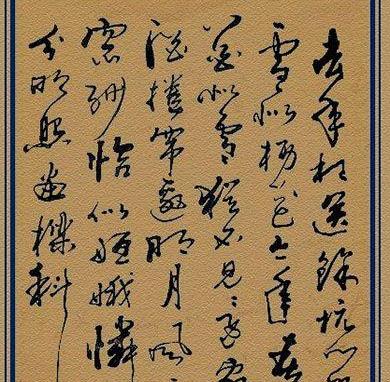 去年相送餘杭門
雪似楊花今年春
花似雪猶不見還家
酒捲帘邀明月風
窗紗恰似姮娥憐
分明照畫樑斜